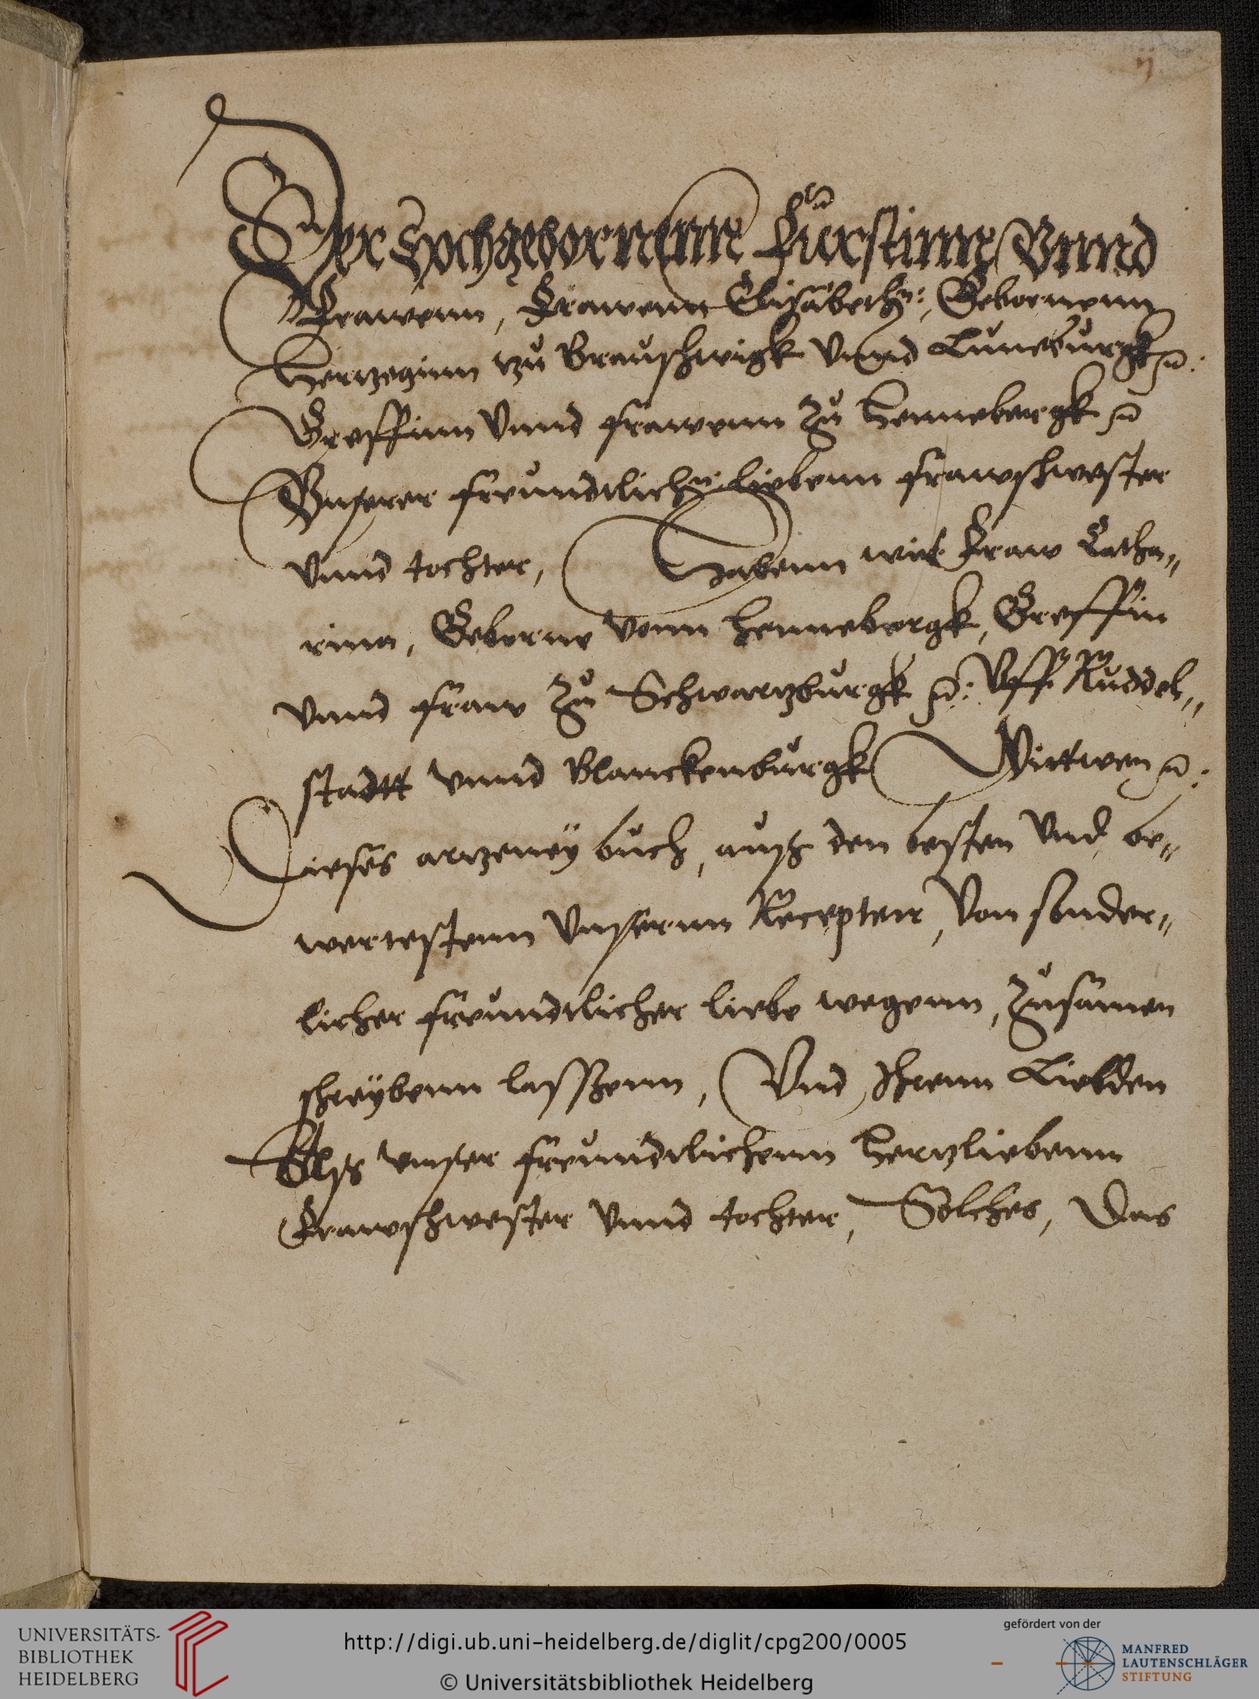 ij
Der Hochgebornenn Furstinn Vnnd
Frawenn, Frawenn Elisabeth:, Gebornenn
Hertzoginn tzu Braunschwigk Vnnd Luneburgk ꝛc:
Greffinn Vnnd frawenn Zu Hennebergk ꝛc
Vnserer freundtlichen liebenn frawschwester
vnnd tochter, Habenn wir Fraw Catha„
rina, Geborne vonn Hennebergk, Greffin
vnnd fraw Zu Schwartzburgk ꝛc: Vff Ruddel„
stadtt vnnd Blanckenburgk Wittwen ꝛc:
Dieses artzeney buch, auß den besten Vnd be„
wertestenn Vnsernn Recepten, Von sonder„
licher freundtlicher liebe wegenn, Zusamen
schreybenn lasszenn, Vnd Jhrenn Liebden
Alß vnser freundtlichenn hertzliebenn
Frawschwester Vnnd tochter, Solches, Das
UNIVERSITÄTS-
BIBLIOTHEK
HEIDELBERG
http://digi.ub.uni-heidelberg.de/diglit/cpg200/0005
© Universitätsbibliothek Heidelberg
gefördert von der
MANFRED
LAUTENSCHLÄGER
STIFTUNG